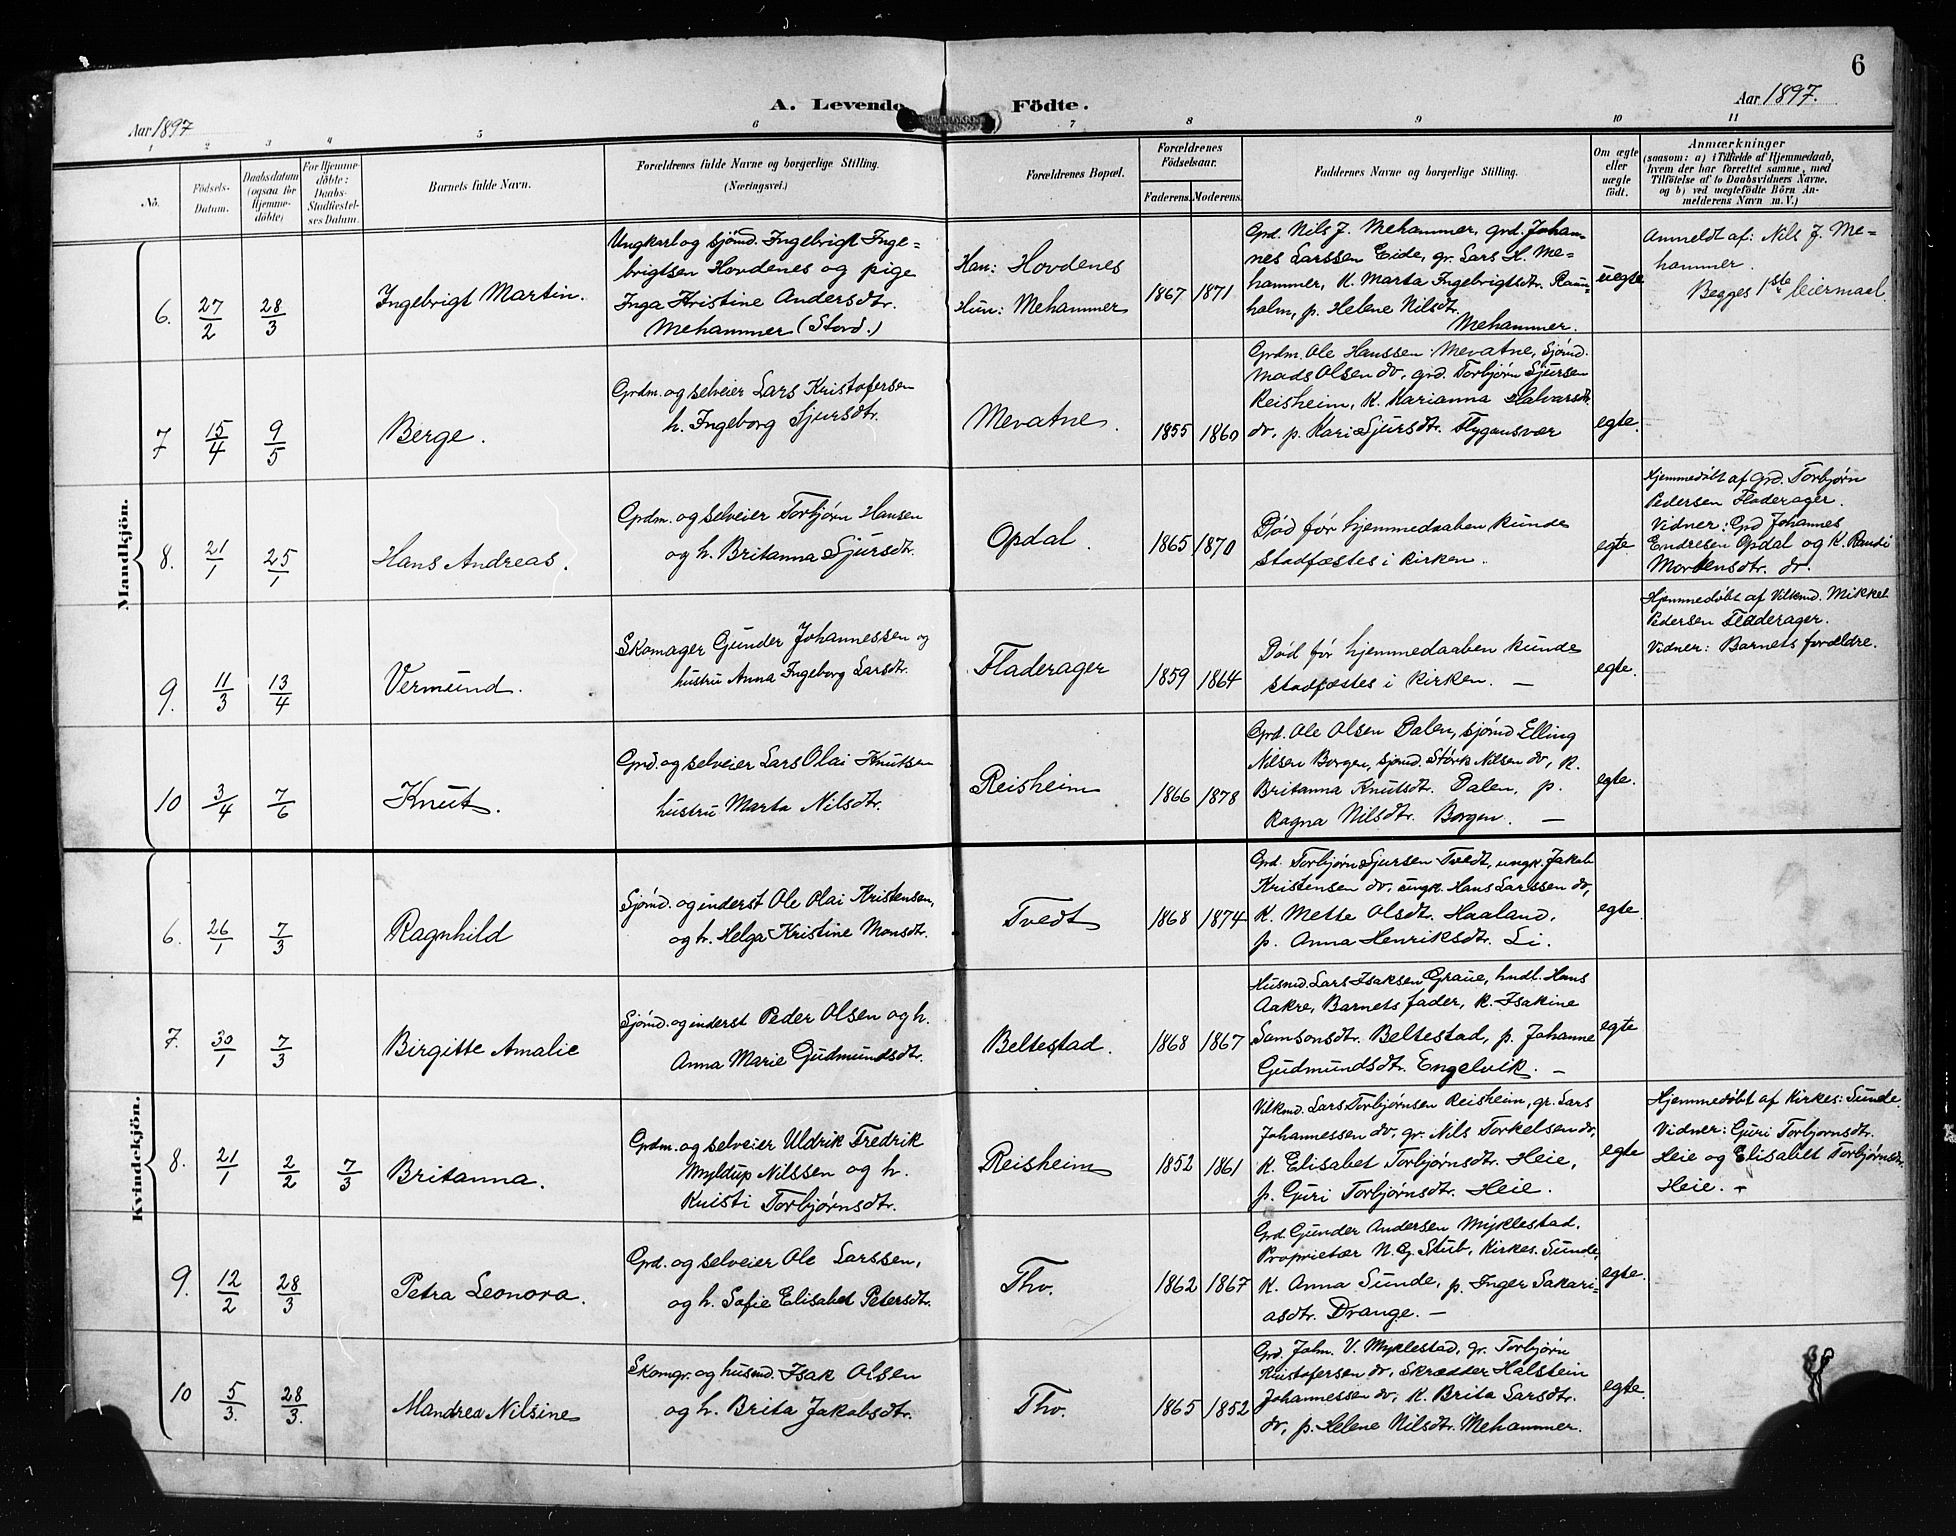 6
A. Levende Födte.
Aar 1897
Aar 1897.
1 2 3 4 5 6 7 8 9 10 11
No.
Födsels-
Datum.
Daabsdatum
(ogsaa for
Hjemme-
döbte)
For Hjemme-
döbte:
Daabs-
Stadfæstel-
ses Datum.
Barnets fulde Navn.
Forældrenes fulde Navne og borgerlige Stilling.
(Næringsvei.)
Forældrenes Bopæl.
Forældrenes
Födselsaar.
Faderens. Moderens.
Faddernes Navne og borgerlige Stilling.
Om ægte
eller
uægte
født.
Anmærkninger
(saasom: a) i Tilfælde af Hjemmedaab,
hvem der har forrettet samme, med
Tilföielse af to Daabsvidners Navne,
og b) ved uegtefödte Börn An-
melderens Navn m. V.)
Mandkjön.
6.
27/2
28/3
Ingebrigt Martin.
Ungkarl og sjömd. Ingebrigt Inge-
brigtsen Hovdenes og pige
Inga Kristine Andersdtr.
Mehammer (Stord.)
Han: Hovdenes
Hun: Mehammer
1867 1871
Grd. Nils J. Mehammer, grd. Johan-
nes Larssen Eide, gr. Lars H. Me-
hammer, K. Marta Ingebrigtsdtr. Ram-
holm, p. Helene Nilsdtr.
Mehammer.
uegte
Anmeldt af: Nils J. Me-
hammer.
Begges 1ste leiermaal.
7
15/4
9/5
Berge.
Grdm. og selveier Lars Kristofersen
h. Ingeborg Sjursdtr.
Mevatne.
1855 1860
Grdm. Ole Hanssen Mevatne, Sjömd.
Mads Olsen do, grd. Torbjörn Sjursen
Reisheim, K. Marianna Halvarsdtr.
do, p. Kari Sjursdtr. Flygansvær
egte.
8.
21/1
25/1
Hans Andreas.
Grdm. og selveier Torbjørn Hansen
og h. Britanna Sjursdtr.
Opdal.
1865 1870
Död før hjemmedaaben kunde
stadfæstes i kirken.
egte
Hjemmedöbt af grd. Torbjørn
Pedersen Fladerager.
Vidner: Grd Johannes
Endresen Opdal og K. Randi
Mortensdtr. do.
9.
11/3
13/4
Vermund.
Skomager Gunder Johannessen og
hustru Anna Ingeborg Larsdtr.
Fladerager
1859 1864
Död før hjemmedaaben kunde
stadfæstes i kirken. —
egte.
Hjemmedöbt af Vilkmd. Mikkel
Pedersen Fladerager.
Vidner: Barnets forældre.
10
3/4
7/6
Knut.
Grd. og selveier Lars Olai Knutsen
hustru Marta Nilsdtr.
Reisheim
1866 1878
Grd. Ole Olsen Dalen, sjømd Elling
Nilsen Borgen, sjømd. Størk Nilsen do, K.
Britanna Knutsdtr. Dalen, p.
Ragna Nilsdtr. Borgen. —
egte.
Kvindekjön.
6.
26/1
7/3
Ragnhild
Sjømd. og inderst Ole Olai Kristensen,
og h. Helga Kristine Monsdtr.
Tvedt
1868 1874
Grd. Torbjørn Sjursen Tvedt, ungk. Jakob
Kristensen do, ungk. Hans Larssen do,
K. Mette Olsdtr. Haaland,
p. Anna Henriksdtr. Li.
egte.
7.
30/1
7/3
Birgitte Amalie
Sjømd. og inderst Peder Olsen og h.
Anna Marie Gudmundsdtr.
Beltestad.
1868 1867
Husmd. Lars Isaksen Graue, hndl. Hans
Aakre, Barnets fader, K. Isakine
Samsonsdtr. Beltestad, p. Johanne
Gudmundsdtr. Engelvik. —
egte
8.
21/1
2/2
7/3
Britanna.
Grdm. og selveier Uldrik Fredrik
Myldtup Nilssen og h.
Kristi Torbjørnsdtr.
Reisheim
1852 1861
Vilkmd. Lars Torbjørnsen Reisheim, gr. Lars
Johannessen do, gr. Nils Torkelsen do,
K. Elisabet Torbjørnsdtr. Heie,
p. Guri Torbjørnsdtr. Heie.
egte
Hjemmedöbt af Kirkes: Sunde.
Vidner: Guri Torbjornsdtr.
Heie og Elisabet Torbjørnsdtr.
Heie. —
9.
12/2
28/3
Petra Leonora.
Grd. og selveier Ole Larssen,
og h. Sofie Elisabet Petersdtr.
Tho.
1862 1867
Grd. Gunder Andersen Myklestad,
Proprietær N. G. Stub, Kirkes. Sunde,
K. Anna Sunde, p. Inger Sakari-
asdtr. Drange. —
egte.
10
5/3.
28/3.
Mandrea Nilsine
Skomgr. og husmd. Isak Olsen
og h. Brita Jakobsdtr.
Tho.
1865 1852
Grd. Johm. V. Myklestad, gr. Torbjørn
Kristofersen do, Skrædder Halstein
Johannessen do, K. Brita Larsdtr.
do, p. Helene Nilsdtr. Mehammer.
egte.